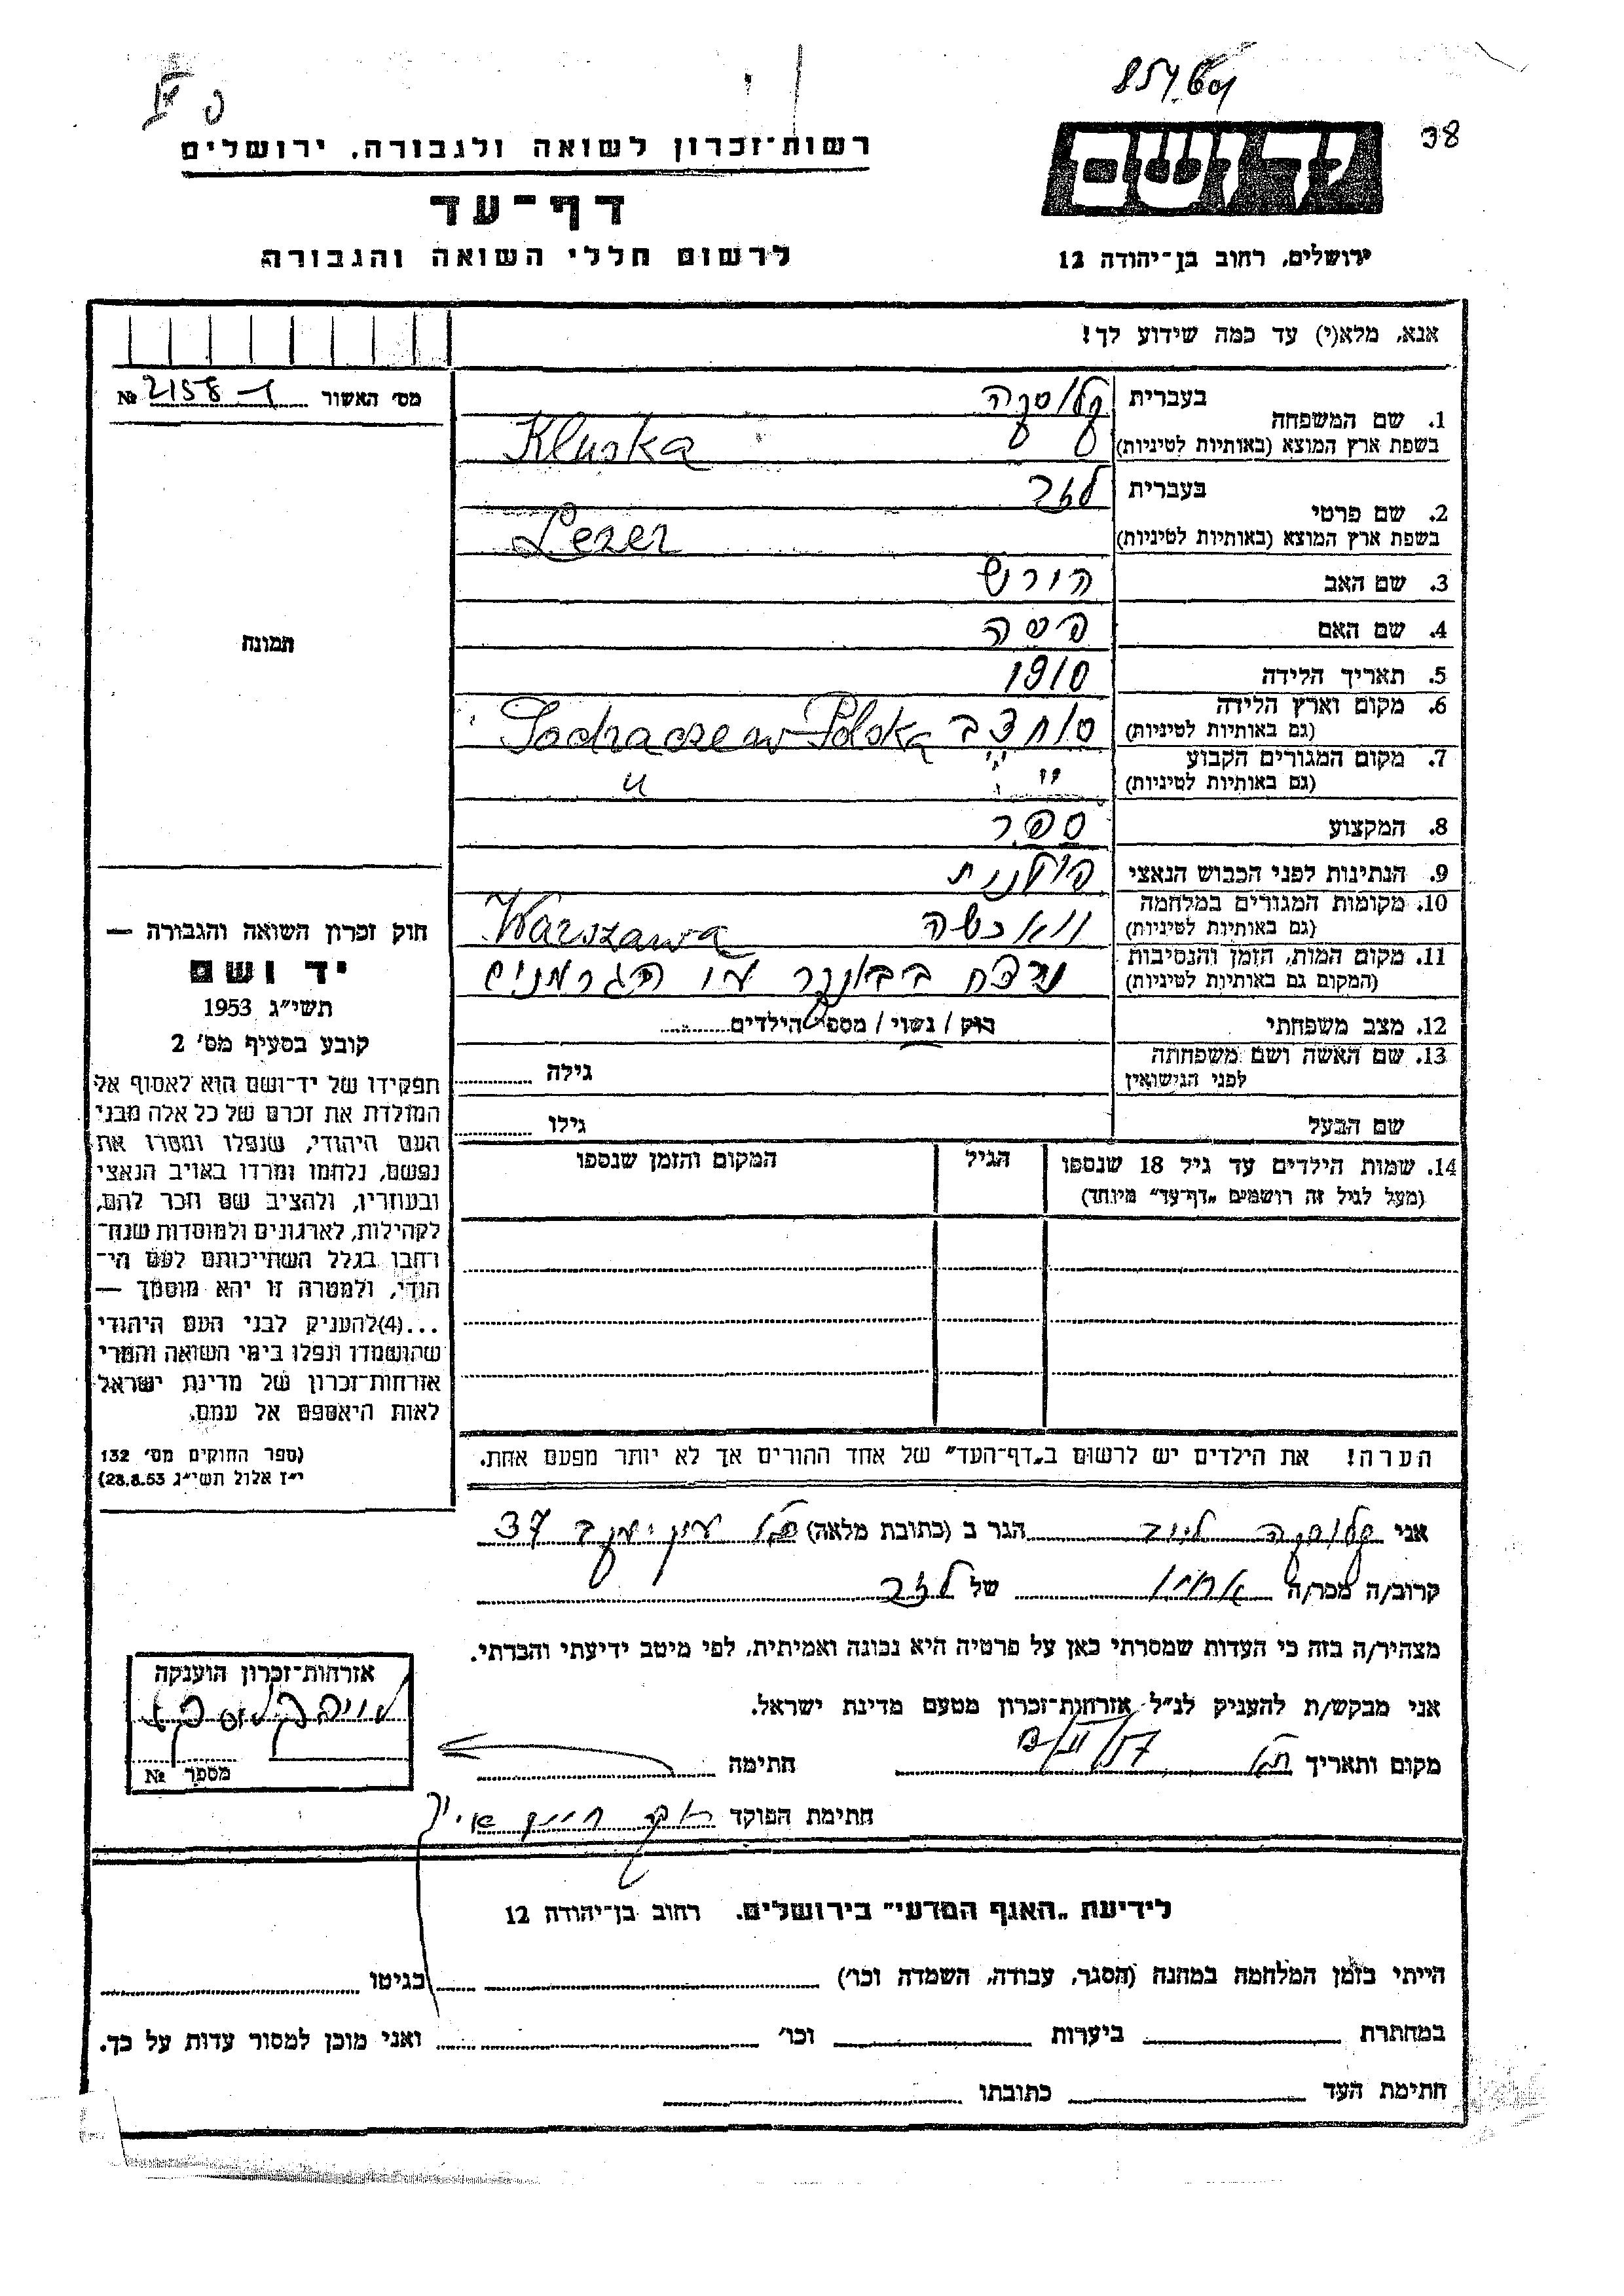 854601
38
יד ושם
ירושלים, רחוב בן־יהודה 12
רשות־זכרון לשואה ולגבורה, ירושלים
דף־עד
לרשום חללי השואה והגבורה
אנא, מלא(י) עד כמה שידוע לך!
מס׳ האשור 2158 №
תמונה
חוק זכרון השואה והגבורה —
יד ושם
תשי״ג 1953
קובע בסעיף מס׳ 2
תפקידו של יד־ושם הוא לאסוף אל
המולדת את זכרם של כל אלה מבני
העם היהודי, שנפלו ומסרו את
נפשם, נלחמו ומרדו באויב הנאצי
ובעוזריו, ולהציב שם וזכר להם,
לקהילות, לארגונים ולמוסדות שנח־
רחבו בגלל השתייכותם לעם הי־
הודי, ולמטרה זו יהא מוסמך —
...(4)להעניק לבני העם היהודי
שהושמדו ונפלו בימי השואה והמרי
אזרחות־זכרון של מדינת ישראל
לאות היאספם אל עמם.
(ספר החוקים מס׳ 132
י״ז אלול תשי״ג 28.8.53)
1. שם המשפחה בעברית קלוסקה
בשפת ארץ המוצא (באותיות לטיניות) Kluska
2. שם פרטי בעברית לזר
בשפת ארץ המוצא (באותיות לטיניות) Lezer
3. שם האב הירש
4. שם האם פסה
5. תאריך הלידה 1910
6. מקום וארץ הלידה (גם באותיות לטיניות) Sochaczew Polska
7. מקום המגורים הקבוע (גם באותיות לטיניות) " "
8. המקצוע ספר
9. הנתינות לפני הכבוש הנאצי פולנית
10. מקומות המגורים במלחמה (גם באותיות לטיניות) ווארשה Warszawa
11. מקום המות, הזמן והנסיבות (המקום גם באותיות לטיניות) נרצח בבונקר ע״י הגרמנים
12. מצב משפחתי רוק / נשוי / מספר הילדים
13. שם האשה ושם משפחתה לפני הנישואין גילה
שם הבעל גילו
14. שמות הילדים עד גיל 18 שנספו (מעל לגיל זה רושמים „דף־עד״ מיוחד) הגיל המקום והזמן שנספו
הערה! את הילדים יש לרשום ב„דף־העד״ של אחד ההורים אך לא יותר מפעם אחת.
אני קלוסקה הגר ב (כתובת מלאה) יעקב 37
קרוב/ה מכר/ה אחיו של לזר
מצהיר/ה בזה כי העדות שמסרתי כאן על פרטיה היא נכונה ואמיתית, לפי מיטב ידיעתי והכרתי.
אני מבקש/ת להעניק לנ״ל אזרחות־זכרון מטעם מדינת ישראל.
מקום ותאריך חתימה
חתימת הפוקד
אזרחות־זכרון הוענקה
מספר №
לידיעת „האגף המדעי״ בירושלים, רחוב בן־יהודה 12
הייתי בזמן המלחמה במחנה (הסגר, עבודה, השמדה וכו׳) בגיטו
במחתרת ביערות וכו׳ ואני מוכן למסור עדות על כך.
חתימת העד כתובתו